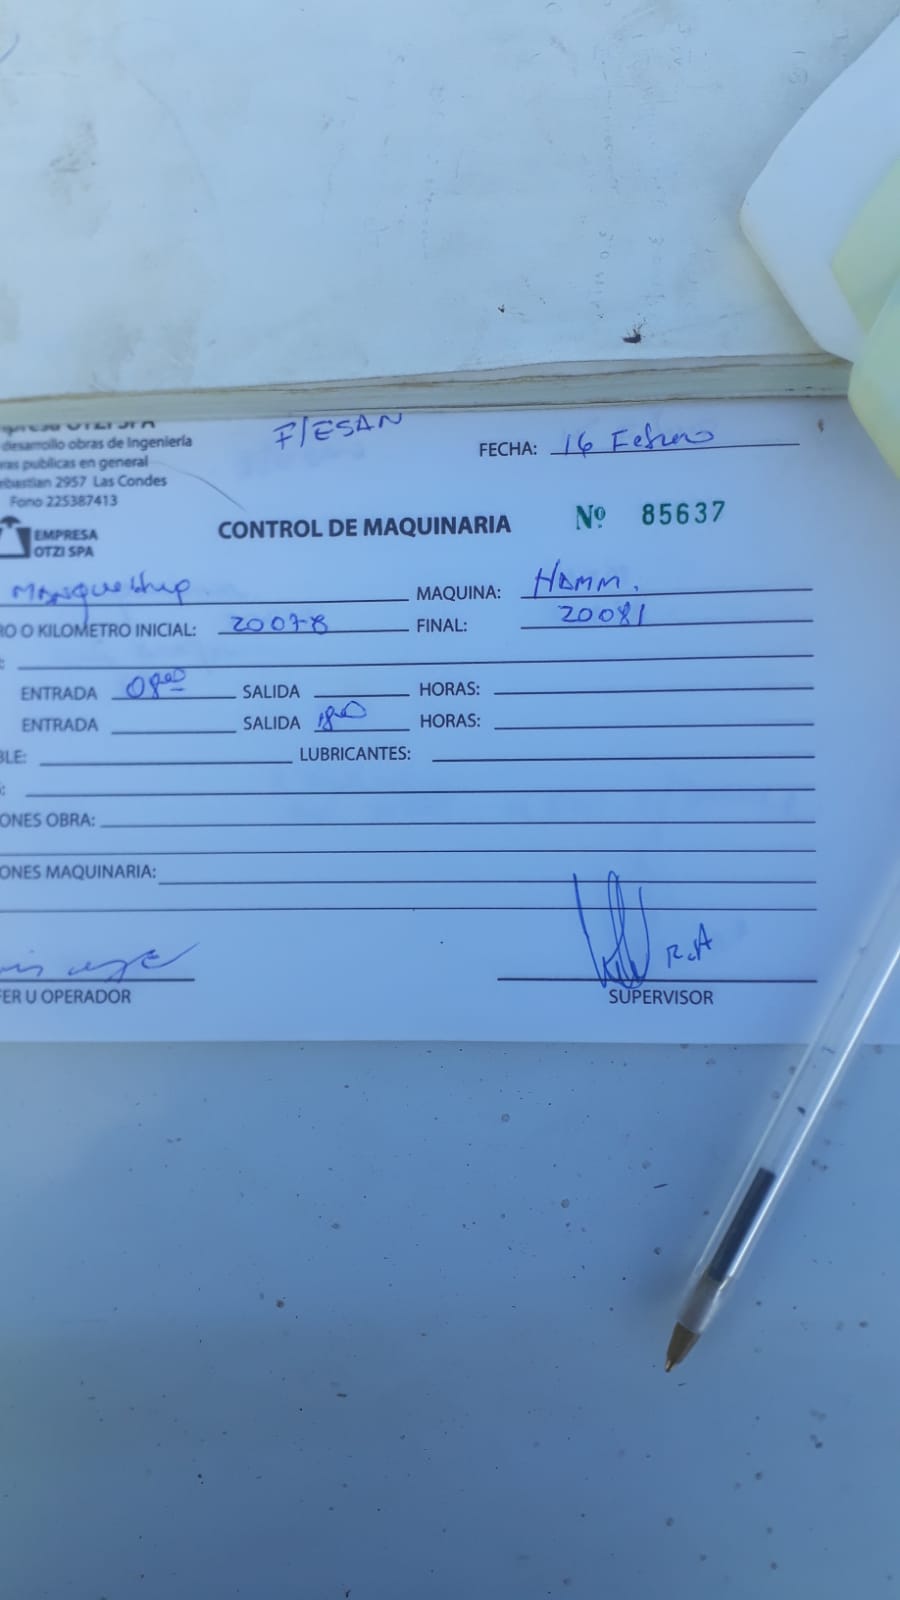 F/ESAN
desarrollo obras de Ingeniería
ras publicas en general
ebastian 2957 Las Condes
Fono 225387413
FECHA: 16 Febrero
EMPRESA
OTZI SPA
CONTROL DE MAQUINARIA
Nº 85637
MAQUINA: HAMM.
RO O KILOMETRO INICIAL: 20078 FINAL: 20081
ENTRADA 08:00 SALIDA HORAS:
ENTRADA SALIDA 18:00 HORAS:
BLE: LUBRICANTES:
ONES OBRA:
ONES MAQUINARIA:
FER U OPERADOR
SUPERVISOR